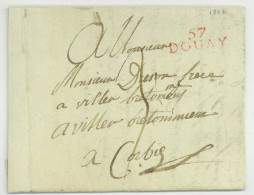 1806
57
DOUAY
A Monsieur
Monsieur frere
a viller bretonneux
a viller bretonnieux
a Corbie